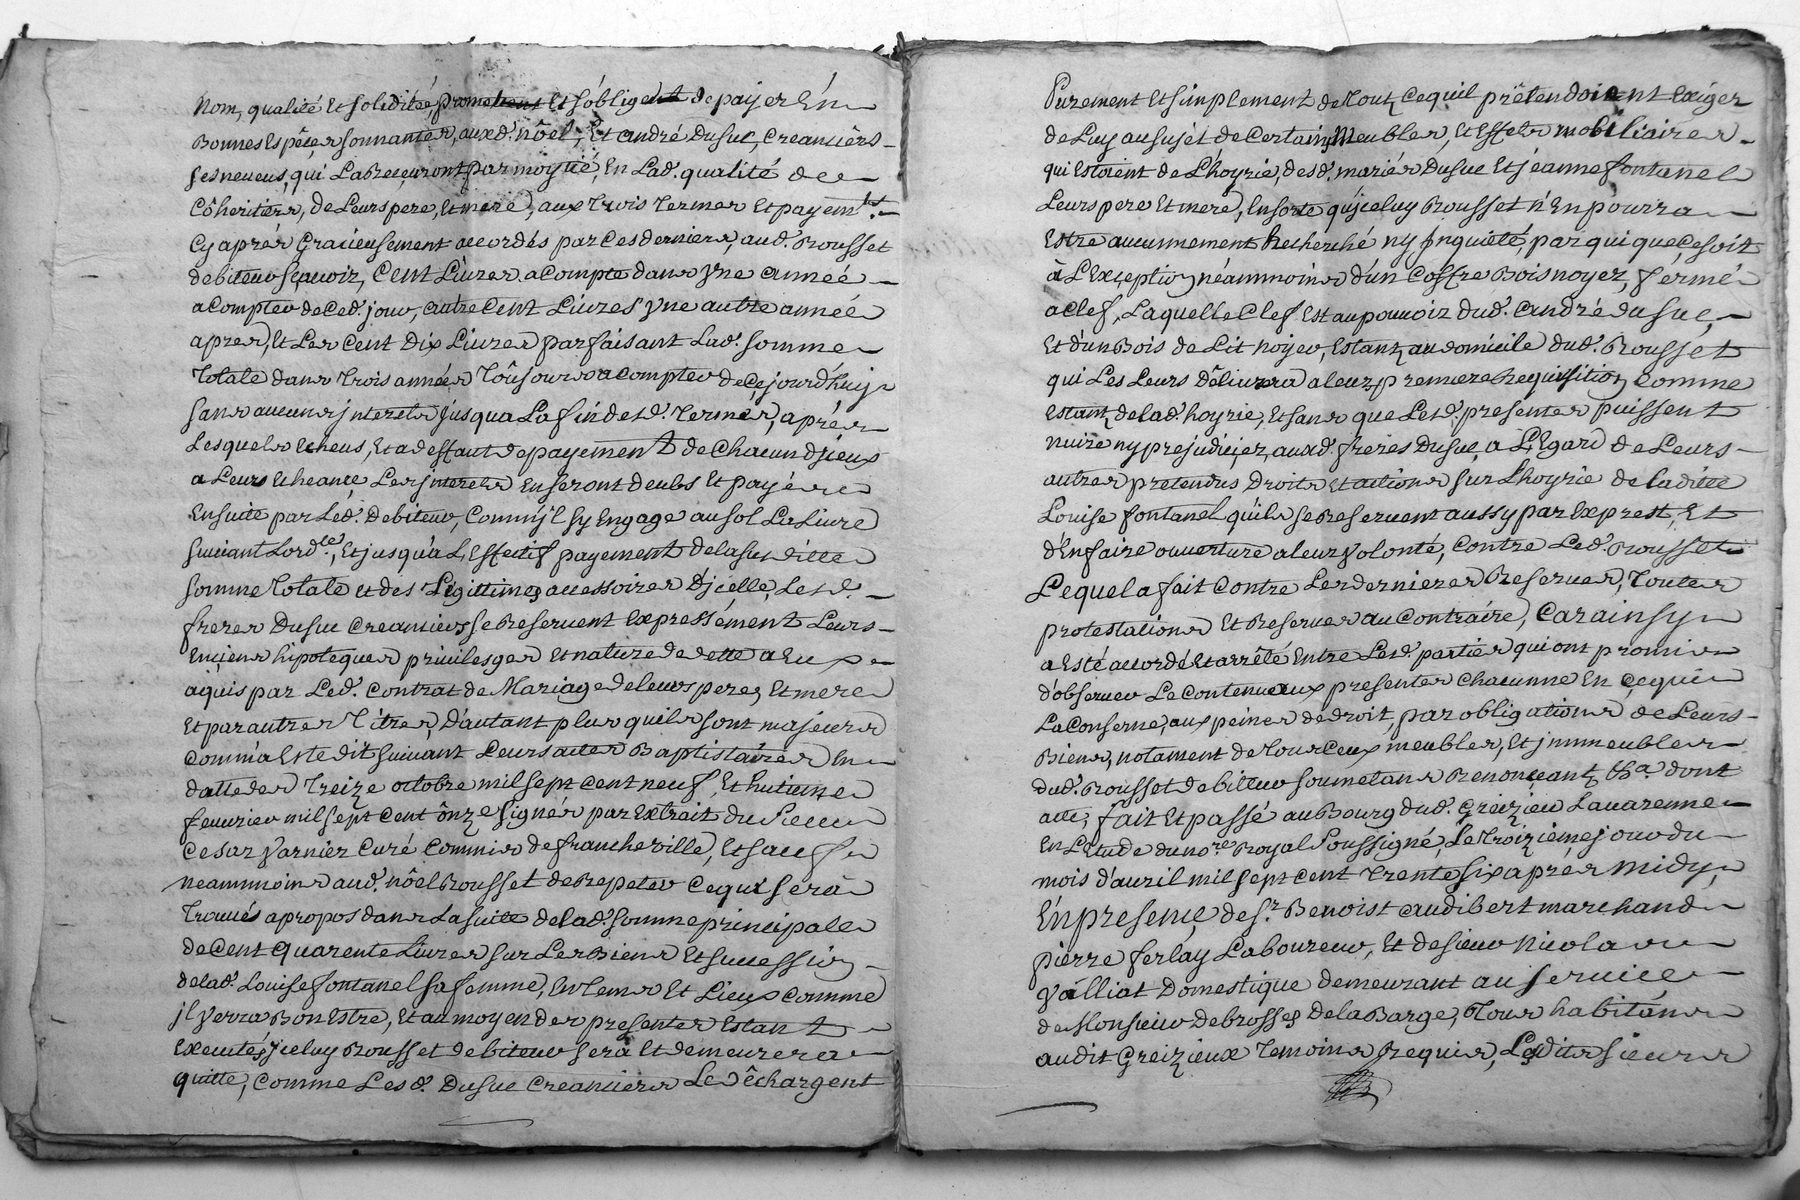 Nom, qualité Et solidité, promettent Et s'obligent de payer En
Bonnes Espèces sonnantes, auxd. nôel, Et andré Dusuc, Creanciers
ses neveus, qui La Recevront par moytié, En Lad. qualité de
Côheritiers, de Leurs pere, Et mere, aux trois termes Et payemts.
Cy aprés Gracieusement accordés par Ces derniers, aud. Rousset
debiteur sçavoir, Cent Livres a Compte dans Vne année
a Compter de Ced. jour, autre Cent Livres Vne autre année
apres, Et Les Cent Dix Livres parfaisant Lad. somme
totale dans trois années toûsjours a Compter de Cejourd'huy
sans aucuns jnterets jusqua La fin desd. termes, aprés
Lesquels Echeus, Et a deffaut de payement de Chacun d'jceux
a Leurs Echeance Les jnterets En seront deubs Et payés
Ensuite par Led. Debiteur, Comm'jl s'y Engage au sol La Livre
suivant Lordce., Et jusqu'a L'Effectif payement de lasusditte
somme totale et des Légittimes accessoires D'jcelle, Lesd.
freres Dusuc Creanciers se Reservent Expressément Leurs
Enciens hipoteques privileges Et nature de dette a Eux
aquis par Led. Contrat de Mariage de leurs pere, Et mere
Et par autres titres, D'autant plus quils sont majeurs
Comm'a Este dit suivant Leurs actes Baptistaires En
datte des treize octobre mil sept cent neuf, Et hutieme
fevrier mil sept cent ônze signés par Extrait du Sieur
Cesar Varnier Curé Commis de francheville, Et sauf
neammoins aud. nôel Rousset de Repeter Ce qui serà
trouvés a propos dans La suite de lad. somme principale
de Cent quarente Livres sur Les Biens Et succession
delad. Louise fontanel sa femme, En tems Et Lieux Comme
jl Verra Bon Estre, Et au moyen des presentes Estant
Executés, jceluy Rousset debiteur sera Et demeurera
quitte, Comme Lesd. Dusuc Creanciers Le dêchargent
Purement Et simplement de tout, Ce quil prêtendoient Exiger
de Luy au sujét de Certains Meubles, Et Effets mobiliaires
qui Estoient de L'hoyrie, desd. mariés Dusuc Et jéanne fontanel
Leurs peres Et mere, En sorte qu'jceluy Rousset n'En pourra
Estre aucunnement Recherché ny Jnquiété, par qui que Ce soit
à L'Exception néammoins d'un Coffre Bois noyer, fermé
a Clef, Laquelle Clef Est au pouvoir dud. andré dusuc,
Et d'un Bois de Lit noyer, Estant au domicile dud. Rousset
qui Les Leurs dêlivrera a leur premiere Requisition Comme
Estant de lad. hoyrie, Et sans que Lesd. presentes puissent
nuire ny prejudicier, auxd. freres Dusuc, a L'Egard de Leurs
autres pretendus Droits Et actions sur L'hoyrie de laditte
Louise fontanel qu'ils se Reservent aussy par Exprest, Et
d'En faire ouverture a leur Volonté, Contre Led. Rousset
Lequel a fait Contre Les derniers Reserves, toutes
protestations Et Reserves au Contraire, Car ainsy
a Esté accordé Et arrêté Entre Lesd. parties qui ont promis
d'observer Le Contenu aux presentes Chacunne En ce qui
La Conserne, aux peines de droit, par obligations de Leurs
Biens, notament de tous Ceux meubles, Et jmmeubles
dud. Rousset debiteur soumetans Renonçeant, &a. dont
acte, fait Et passé au Bourg dud. Greizieu Lavarenne
En L'Etude du nore. Royal soussigné, Le troizieme jour du
mois d'avril mil sept cent trente six aprés midy,
En présence, de sr. Benoist audibert marchand
pierre ferlay Laboureur, Et de sieur Nicolas
Valliat Domestique demeurant au service
de Monsieur Debrosses de la Barge, tous habitans
audit Greizieux temoins Requis, Lesdits sieurs